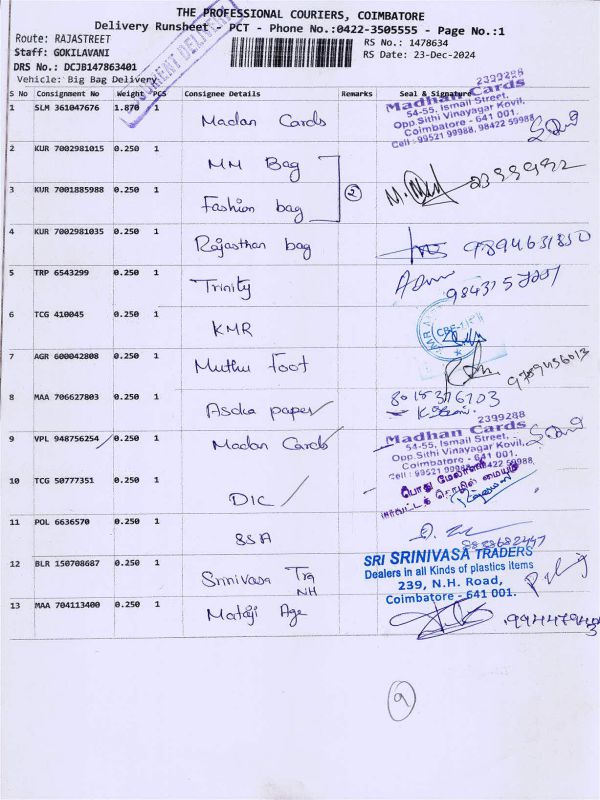 THE PROFESSIONAL COURIERS, COIMBATORE
Delivery Runsheet - PCT - Phone No.:0422-3505555 - Page No.:1
Route: RAJASTREET
RS No.: 1478634
Staff: GOKILAVANI
RS Date: 23-Dec-2024
DRS No.: DCJB147863401
Vehicle: Big Bag Delivery
S No Consignment No Weight PCS Consignee Details Remarks Seal & Signature
1 SLM 361047676 1.870 1 Madan Cards
2399288
Madhan Cards
54-55, Ismail Street,
Opp.Sithi Vinayagar Kovil,
Coimbatore - 641 001.
Cell : 99521 99988, 98422 59988
2 KUR 7002981015 0.250 1 MM Bag
3 KUR 7001885988 0.250 1 Fashion bag 2
4 KUR 7002981035 0.250 1 Rajasthan bag
5 TRP 6543299 0.250 1 Trinity
6 TCG 410045 0.250 1 KMR
7 AGR 600042808 0.250 1 Muthu Foot 9789456013
8 MAA 706627803 0.250 1 Asoka paper
9 VPL 948756254 0.250 1 Madan Cards
2399288
Madhan Cards
54-55, Ismail Street,
Opp.Sithi Vinayagar Kovil,
Coimbatore - 641 001.
Cell : 99521 99988, 98422 59988
10 TCG 50777351 0.250 1 DIC
11 POL 6636570 0.250 1 SSA
12 BLR 150708687 0.250 1 Srinivasa Tra
NH
SRI SRINIVASA TRADERS
Dealers in all Kinds of plastics items
239, N.H. Road,
Coimbatore - 641 001.
13 MAA 704113400 0.250 1 Mataji Age
9